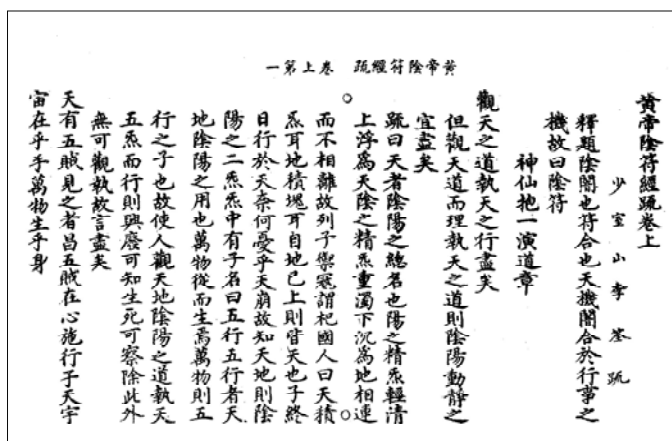 黃帝陰符經疏　卷上第一
黃帝陰符經疏卷上
少室山李筌疏
釋題陰闇也符合也天機闇合於行事之
機故曰陰符
神仙抱一演道章
觀天之道執天之行盡矣
但觀天道而理執天之道則陰陽動靜之
宜盡矣
疏曰天者陰陽之總名也陽之精炁輕清
上浮為天陰之精炁重濁下沉為地相連
而不相離故列子禦寇謂杞國人曰天積
炁耳地積塊耳自地已上則皆天也子終
日行於天奈何憂乎天崩故知天地則陰
陽之二炁炁中有子名曰五行五行者天
地陰陽之用也萬物從而生焉萬物則五
行之子也故使人觀天地陰陽之道執天
五炁而行則興廢可知生死可察除此外
無可觀執故言盡矣
天有五賊見之者昌五賊在心施行于天宇
宙在乎手萬物生乎身